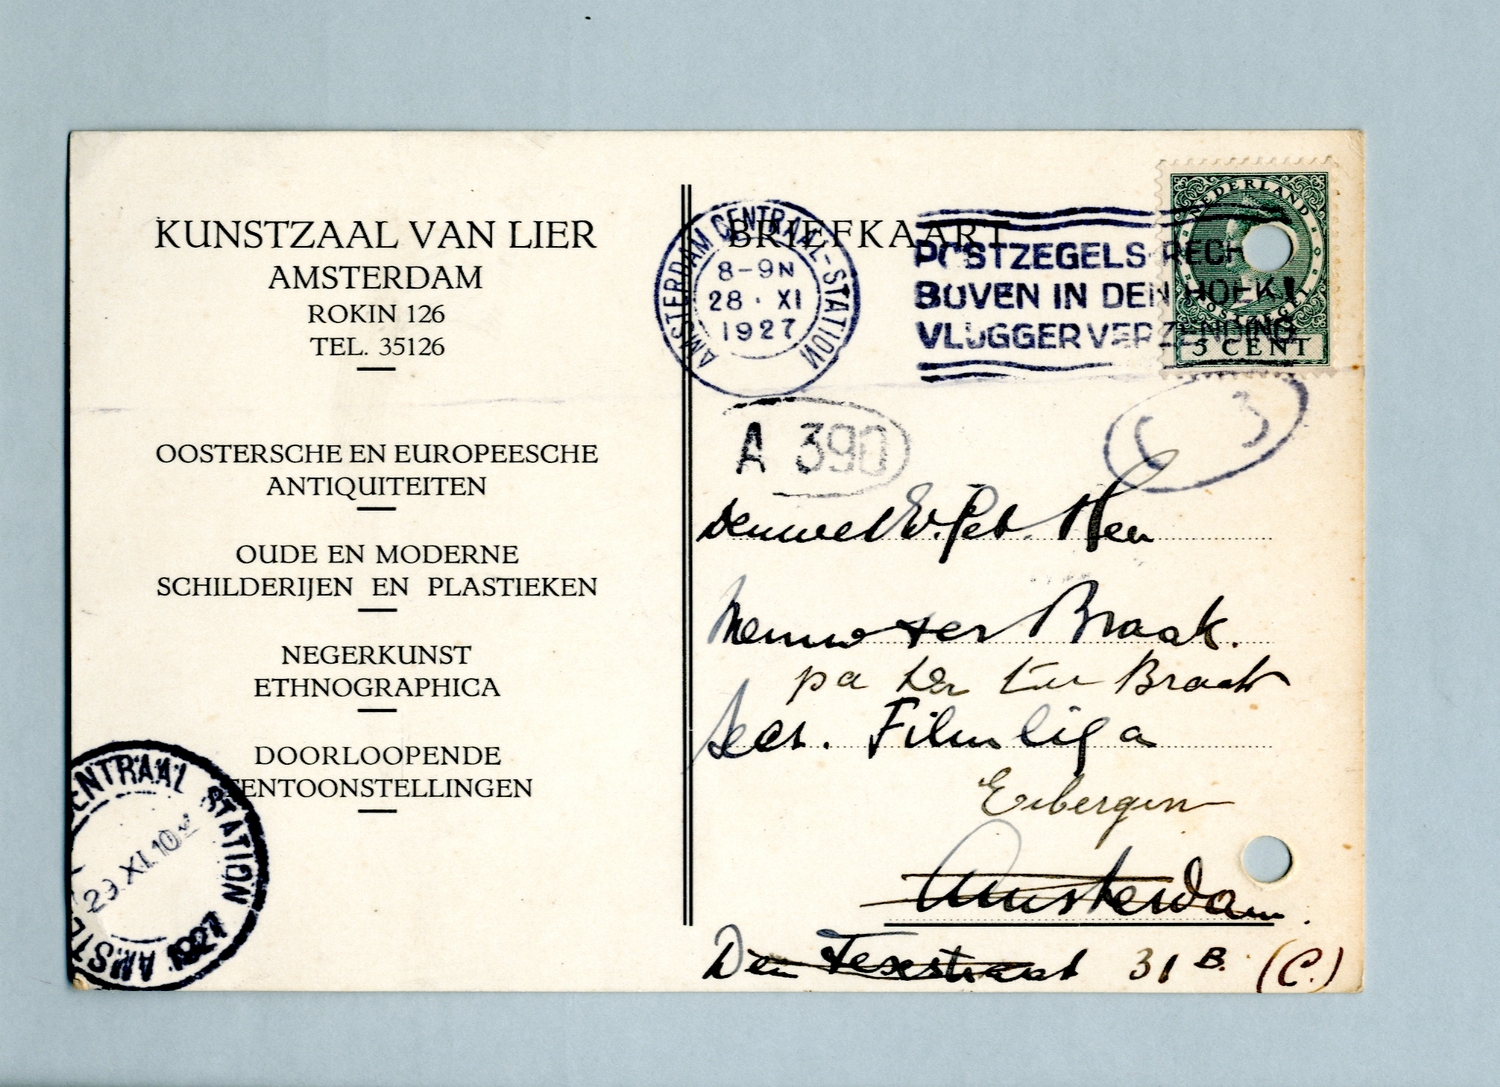 KUNSTZAAL VAN LIER
AMSTERDAM
ROKIN 126
TEL. 35126
OOSTERSCHE EN EUROPEESCHE
ANTIQUITEITEN
OUDE EN MODERNE
SCHILDERIJEN EN PLASTIEKEN
NEGERKUNST
ETHNOGRAPHICA
DOORLOOPENDE
TENTOONSTELLINGEN
CENTRAAL STATION
29.XI.10
1927
BRIEFKAART
AMSTERDAM CENTRAAL-STATION
8-9N
28 · XI
1927
POSTZEGELS RECH
BOVEN IN DEN HOEK!
VLUGGER VERZENDING
NEDERLAND
POSTZEGEL
5 CENT
A 390
C 3
Den Heer
Menno ter Braak.
pa ter Braak
Secr. Filmliga
Eibergen
Amsterdam.
Den Texstraat 31 B. (C.)